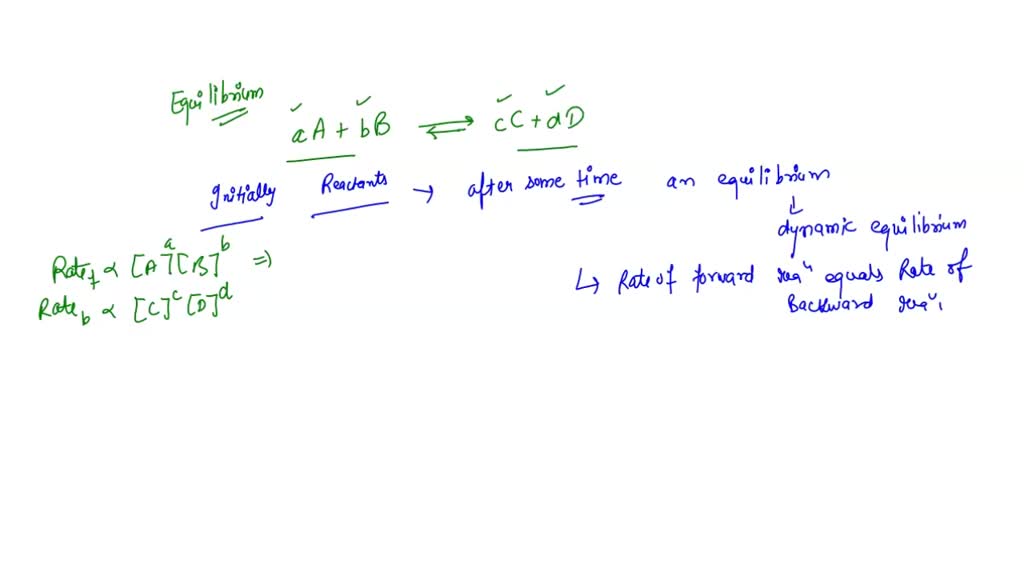 Equilibrium
aA + bB ⇌ cC + dD
Initially Reactants → after some time an equilibrium
↓
dynamic equilibrium
Rate_f ∝ [A]^a [B]^b ⇒
↳ Rate of forward rea^n equals Rate of
Backward rea^n,
Rate_b ∝ [C]^c [D]^d